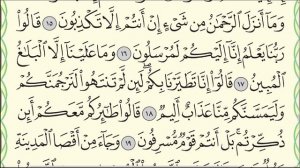 وَمَآ أَنزَلَ ٱلرَّحْمَٰنُ مِن شَىْءٍ إِنْ أَنتُمْ إِلَّا تَكْذِبُونَ ١٥ قَالُوا۟
رَبُّنَا يَعْلَمُ إِنَّآ إِلَيْكُمْ لَمُرْسَلُونَ ١٦ وَمَا عَلَيْنَآ إِلَّا ٱلْبَلَٰغُ
ٱلْمُبِينُ ١٧ قَالُوٓا۟ إِنَّا تَطَيَّرْنَا بِكُمْ لَئِن لَّمْ تَنتَهُوا۟ لَنَرْجُمَنَّكُمْ
وَلَيَمَسَّنَّكُم مِّنَّا عَذَابٌ أَلِيمٌ ١٨ قَالُوا۟ طَٰٓئِرُكُم مَّعَكُمْ أَئِن
ذُكِّرْتُم بَلْ أَنتُمْ قَوْمٌ مُّسْرِفُونَ ١٩ وَجَآءَ مِنْ أَقْصَا ٱلْمَدِينَةِ